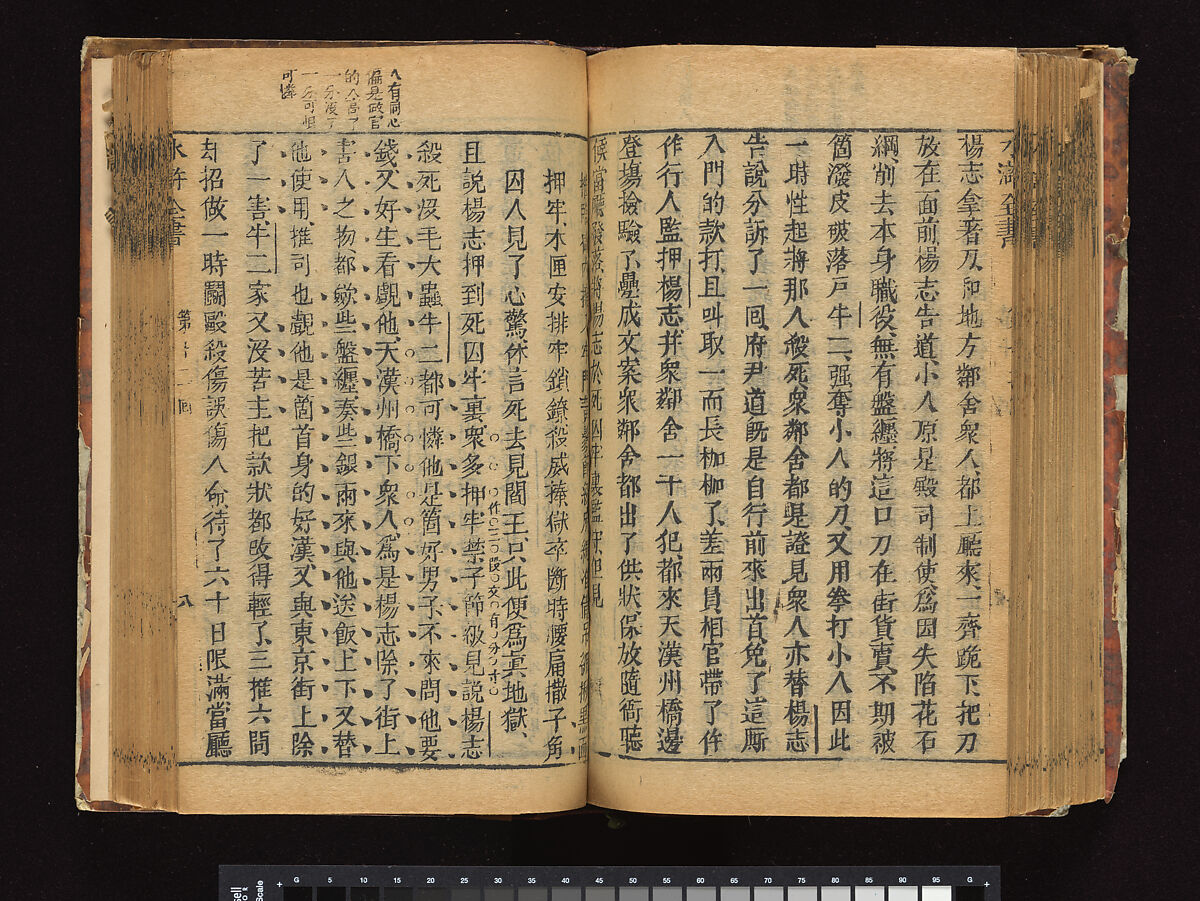 水滸全書
楊志拿著刀和地方鄰舍衆人都上廳來一齊跪下把刀
放在面前楊志告道小人原是殿司制使爲因失陷花石
綱削去本身職役無有盤纏將這口刀在街貨賣不期被
箇潑皮破落戸牛二强奪小人的刀又用拳打小人因此
一時性起將那人殺死衆鄰舍都是證見衆人亦替楊志
告說分訴了一回府尹道既是自行前來出首免了這厮
入門的款打且叫取一靣長枷枷了差兩員相官帶了仵
作行人監押楊志并衆鄰舍一干人犯都來天漢州橋邊
登塲檢驗了疊成文案衆鄰舍都出了供狀保放隨衙聽
候當廳發落將楊志於死囚牢裏監守但見
押牢木匣安排牢鎖鐐殺威棒獄卒斷時腰痛撒子角
囚人見了心驚休言死去見閻王只此便爲眞地獄
且說楊志押到死囚牢裏衆多押牢禁子節級見說楊志
殺死没毛大蟲牛二都可憐他是箇好男子不來問他要
錢又好生看覷他天漢州橋下衆人爲是楊志除了街上
害人之物都歛些盤纏凑些銀兩來與他送飯上下又替
他使用推司也覷他是箇首身的好漢又與東京街上除
了一害牛二家又没苦主把款狀都改得輕了三推六問
却招做一時鬭毆殺傷誤傷人命待了六十日限滿當廳
人有同心
偏是做官
的人害了
一分没了
一分可恨
可憐
此二段文有分寸
水滸全書
第十二回
八